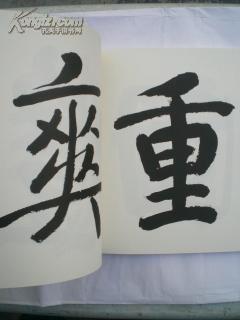 Kongfz.com
孔夫子旧书网
重
爽